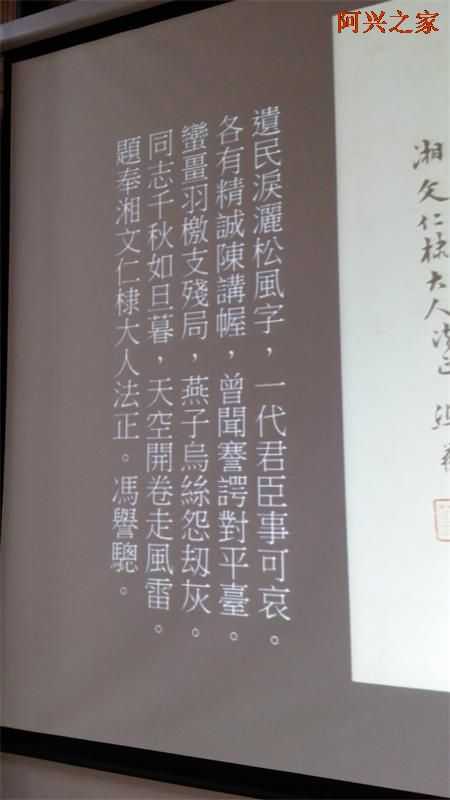 阿兴之家
遺民淚灑松風字，一代君臣事可哀。
各有精誠陳講幄，曾聞謇諤對平臺。
蠻畺羽檄支殘局，燕子烏絲怨刼灰。
同志千秋如旦暮，天空開卷走風雷。
題奉湘文仁棣大人法正。馮譽驄。
湘文仁棣大人法正 馮譽